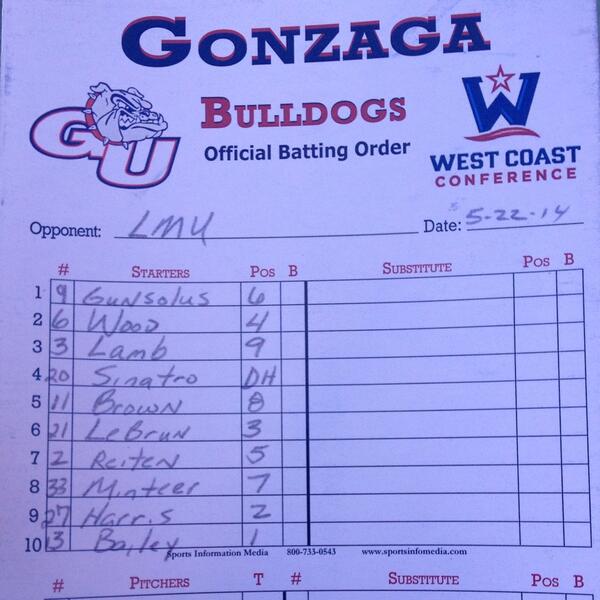 GONZAGA
GU
BULLDOGS
Official Batting Order
W
WEST COAST
CONFERENCE
Opponent: LMU Date: 5-22-14
# STARTERS POS B SUBSTITUTE POS B
1 9 Gunsolus 6
2 6 Wood 4
3 3 Lamb 9
4 20 Sinatro DH
5 11 Brown 8
6 21 LeBrun 3
7 2 Reiten 5
8 33 Minteer 7
9 27 Harris 2
10 13 Bailey 1
Sports Information Media 800-733-0543 www.sportsinfomedia.com
# PITCHERS T # SUBSTITUTE POS B